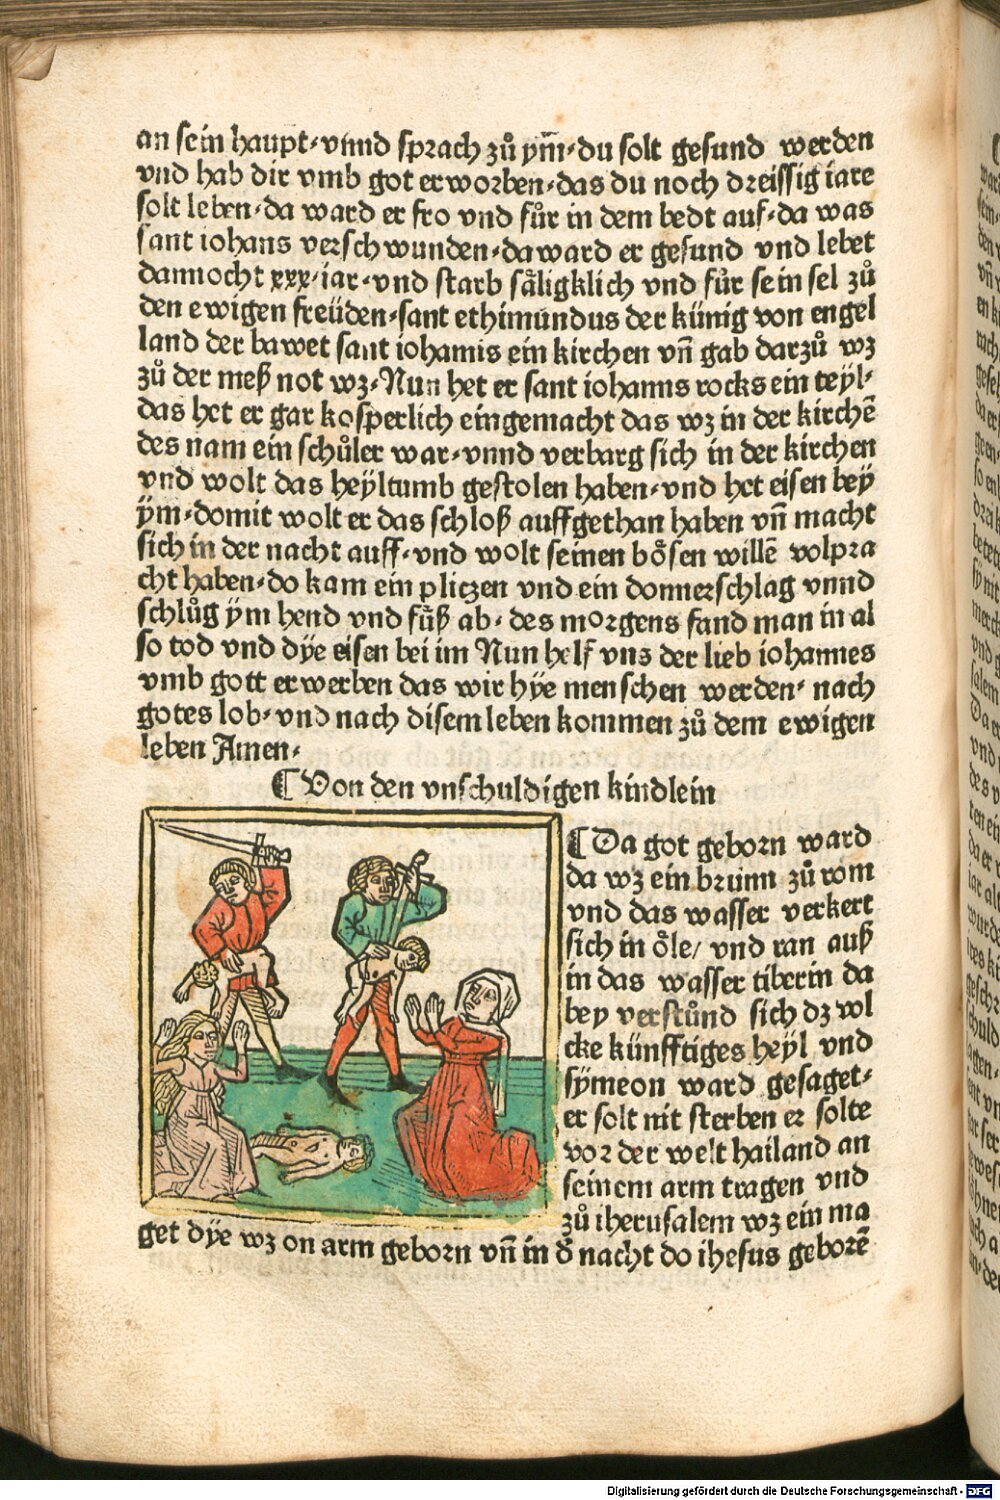 an sein haupt· vnnd sprach zů ym̄· du solt gesund werden
vnd hab dir vmb got erworben· das du noch dreissig iare
solt leben· da ward er fro vnd fůr in dem bedt auf· da was
sant iohans verschwunden· da ward er gesund vnd lebet
dannocht xxx· iar· vnd starb såligklich vnd fůr sein sel zů
den ewigen freüden· sant ethimundus der künig von engel
land der bawet sant iohannis ein kirchen vn̄ gab darzů wz
zů der meß not wz· Nun het er sant iohanns rocks ein teyl·
das het er gar kosperlich eingemacht das wz in der kirchē
des nam ein schůler war· vnnd verbarg sich in der kirchen
vnd wolt das heyltumb gestolen haben· vnd het eisen bey
ÿm· domit wolt er das schloß auffgethan haben vn̄ macht
sich in der nacht auff· vnd wolt seinen bôsen willē volpra
cht haben· do kam ein pliczen vnd ein donnerschlag vnnd
schlůg ÿm hend vnd fůß ab· des morgens fand man in al
so tod vnd dÿe eisen bei im Nun helf vns der lieb iohannes
vmb gott erwerben das wir hÿe menschen werden· nach
gotes lob· vnd nach disem leben kommen zů dem ewigen
leben Amen·
¶ Von den vnschuldigen kindlein
¶ Da got geborn ward
da wz ein brunn zů rom
vnd das wasser verkert
sich in ôle/ vnd ran auß
in das wasser tiberin da
bey verstůnd sich dz vol
cke künfftiges heyl vnd
sÿmeon ward gesaget·
er solt nit sterben er solte
vor der welt hailand an
seinem arm tragen vnd
zů iherusalem wz ein ma
get dÿe wz on arm geborn vn̄ in đ nacht do ihesus geborē
Digitalisierung gefördert durch die Deutsche Forschungsgemeinschaft - DFG